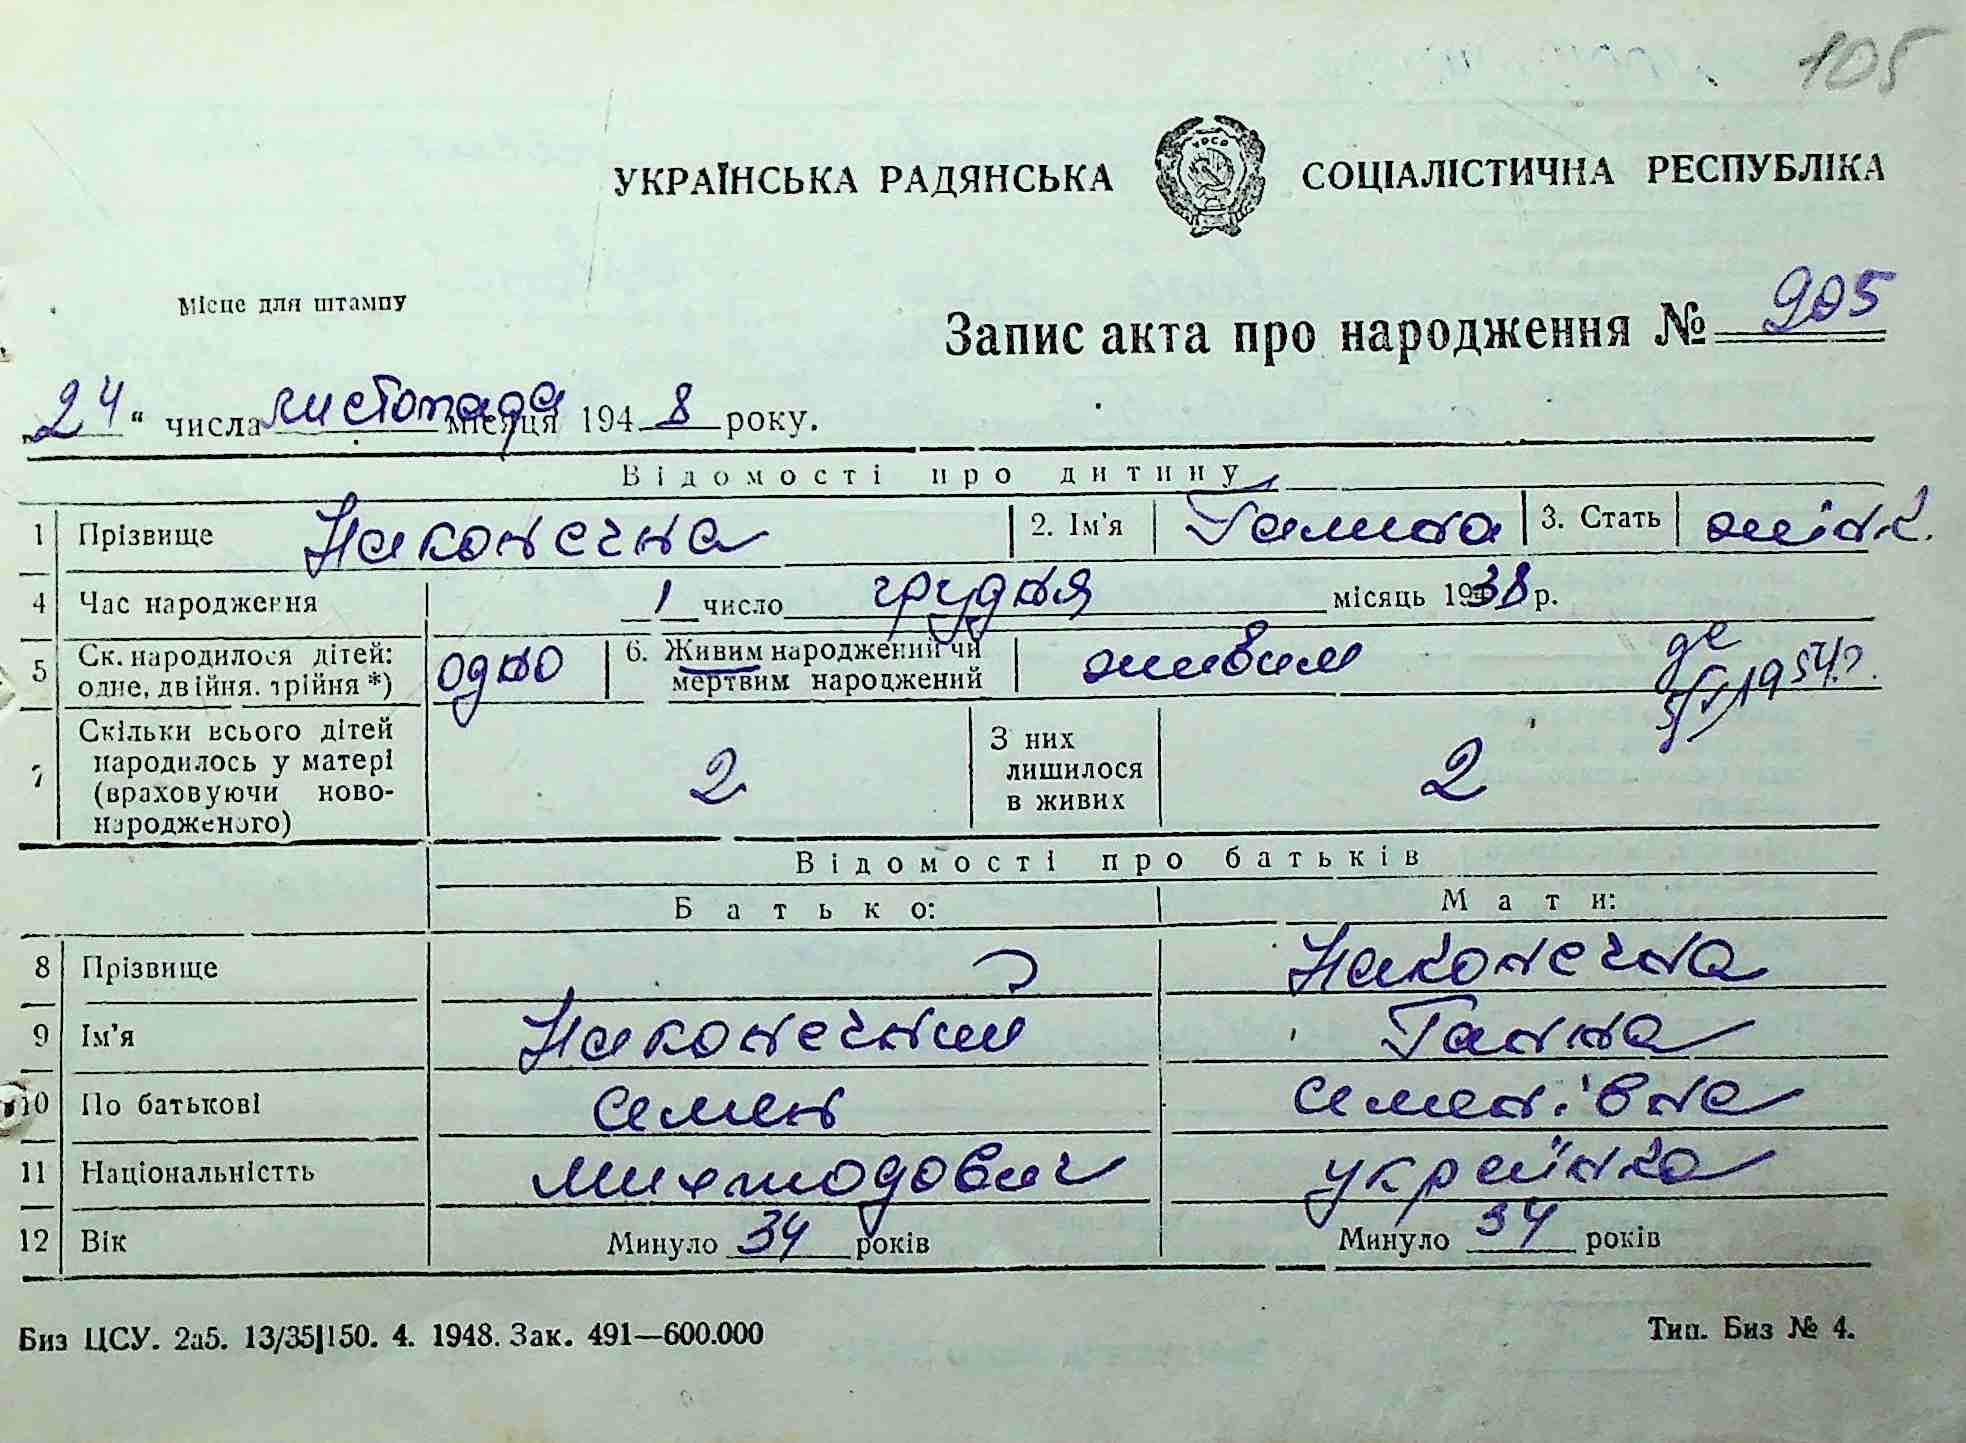 105
УКРАЇНСЬКА РАДЯНСЬКА СОЦІАЛІСТИЧНА РЕСПУБЛІКА
Місце для штампу
Запис акта про народження № 905
„24“ числа листопада місяця 1948 року.
Відомості про дитину
1 Прізвище Наконечна 2. Ім'я Галина 3. Стать жінк.
4 Час народження 1 число грудня місяць 1938 р.
5 Ск. народилося дітей: одне, двійня, трійня *) одно 6. Живим народжений чи мертвим народжений живим
5/V 1954р.
7 Скільки всього дітей народилось у матері (враховуючи ново-народженого) 2 З них лишилося в живих 2
Відомості про батьків
Батько: Мати:
8 Прізвище Наконечна
9 Ім'я Наконечний Ганна
10 По батькові Семен Семенівна
11 Національністть українка
12 Вік Минуло 34 років Минуло 34 років
Биз ЦСУ. 2а5. 13/35|150. 4. 1948. Зак. 491—600.000 Тип. Биз № 4.